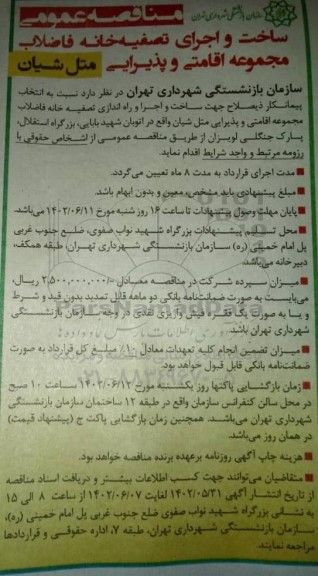 سازمان بازنشستگی شهرداری تهران
مناقصه عمومی
ساخت و اجرای تصفیه‌خانه فاضلاب
مجموعه اقامتی و پذیرایی متل شیان
سازمان بازنشستگی شهرداری تهران در نظر دارد نسبت به انتخاب
پیمانکار ذیصلاح جهت ساخت و اجرا و راه اندازی تصفیه خانه فاضلاب
مجموعه اقامتی و پذیرایی متل شیان واقع در اتوبان شهید بابایی، بزرگراه استقلال،
پارک جنگلی لویزان از طریق مناقصه عمومی از اشخاص حقوقی با
رزومه مرتبط و واجد شرایط اقدام نماید.
مدت اجرای قرارداد به مدت ۸ ماه تعیین می‌گردد.
مبلغ پیشنهادی باید مشخص، معین و بدون ابهام باشد.
پایان مهلت وصول پیشنهادات تا ساعت ۱۶ روز شنبه مورخ ۱۴۰۲/۰۶/۱۱ می‌باشد.
محل تسلیم پیشنهادات بزرگراه شهید نواب صفوی، ضلع جنوب غربی
پل امام خمینی (ره) سازمان بازنشستگی شهرداری تهران، طبقه همکف،
دبیرخانه می‌باشد.
میزان سپرده شرکت در مناقصه معادل ۲,۵۰۰,۰۰۰,۰۰۰/- ریال،
می‌بایست به صورت ضمانت‌نامه بانکی دو ماهه قابل تمدید بدون قید و شرط
و یا به صورت یک فقره فیش واریزی نقدی در وجه سازمان بازنشستگی
شهرداری تهران باشد.
میزان تضمین انجام کلیه تعهدات معادل ۱۰٪ مبلغ کل قرارداد به صورت
ضمانت‌نامه بانکی قابل قبول خواهد بود.
زمان بازگشایی پاکتها روز یکشنبه مورخ ۱۴۰۲/۰۶/۱۲ ساعت ۱۰ صبح
در محل سالن کنفرانس سازمان واقع در طبقه ۱۲ ساختمان سازمان بازنشستگی
شهرداری تهران می‌باشد. همچنین زمان بازگشایی پاکت ج (پیشنهاد قیمت)
در همان روز می‌باشد.
هزینه چاپ آگهی روزنامه برعهده برنده مناقصه خواهد بود.
متقاضیان می‌توانند جهت کسب اطلاعات بیشتر و دریافت اسناد مناقصه
از تاریخ انتشار آگهی ۱۴۰۲/۰۵/۳۱ لغایت ۱۴۰۲/۰۶/۰۷ از ساعت ۸ الی ۱۵
به نشانی بزرگراه شهید نواب صفوی ضلع جنوب غربی پل امام خمینی (ره)،
سازمان بازنشستگی شهرداری تهران، طبقه ۷، اداره حقوقی و قراردادها
مراجعه نمایند.